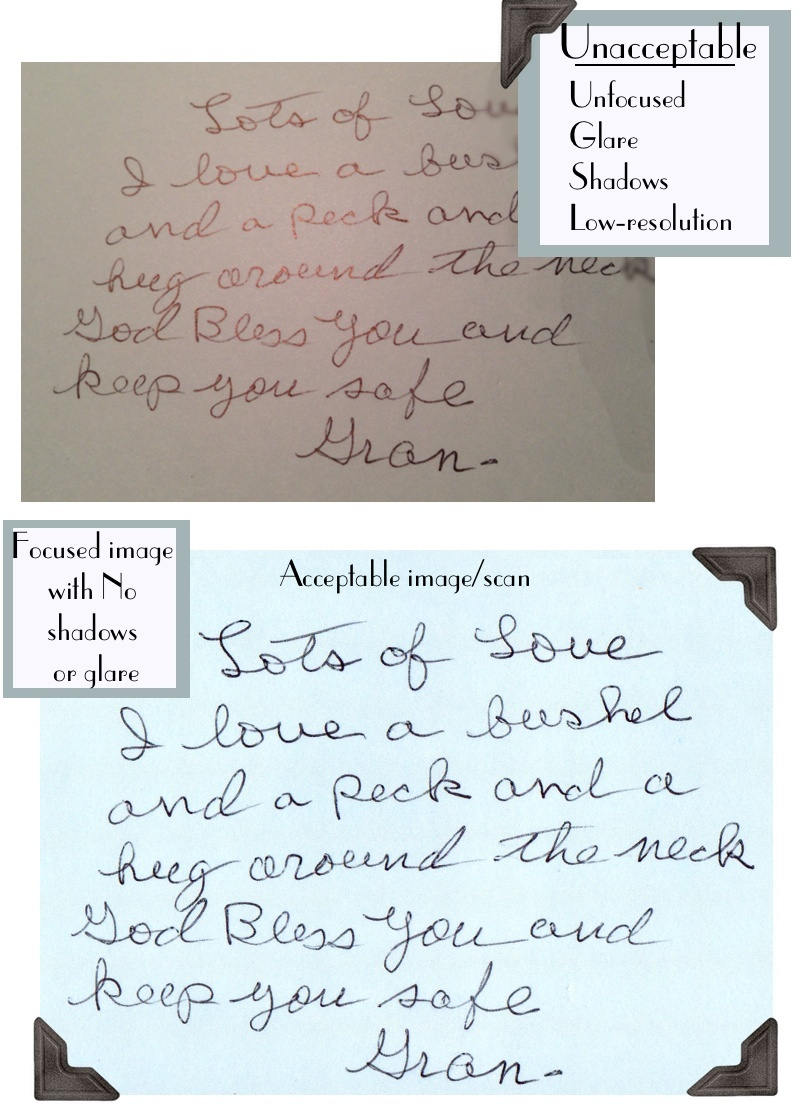 Unacceptable
Unfocused
Glare
Shadows
Low-resolution
Lots of Lov
I love a bus
and a peck and
hug around the neck
God Bless You and
keep you safe
Gran-
Focused image
with No
shadows
or glare
Acceptable image/scan
Lots of Love
I love a bushel
and a peck and a
hug around the neck
God Bless You and
keep you safe
Gran-